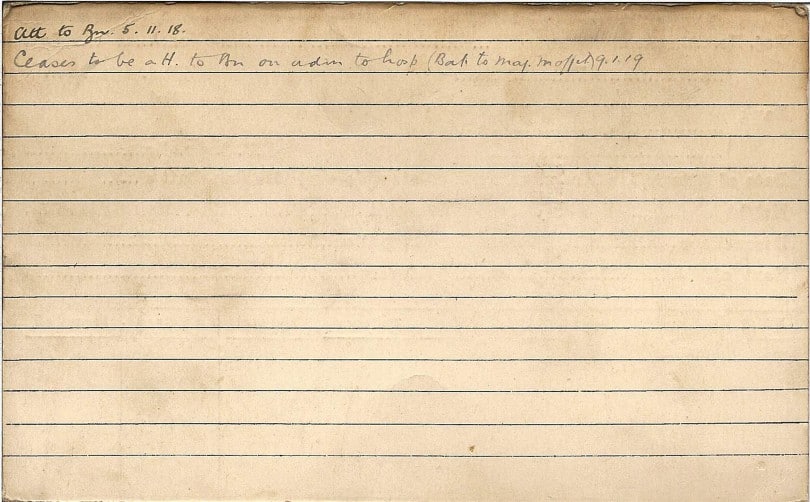 Att to Bn. 5.11.18.
Ceases to be att. to Bn on adm to hosp (Bat to Maj. Moffet) 9.1.19